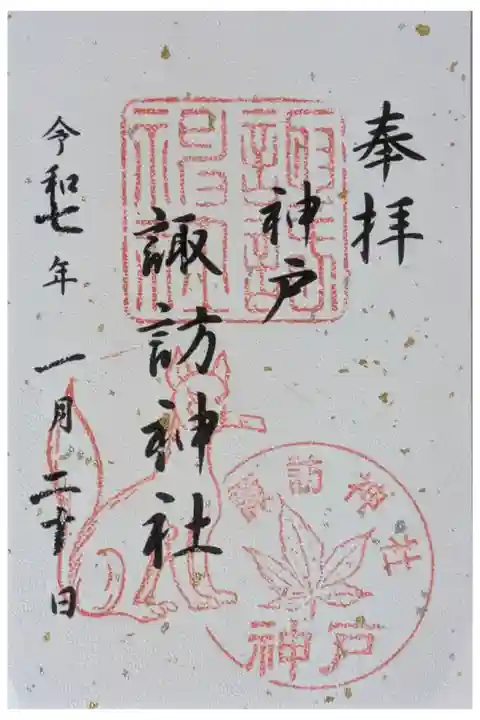 奉拝
神戸
諏訪神社
令和七年一月二十日
諏訪神社
諏訪神社
神戸